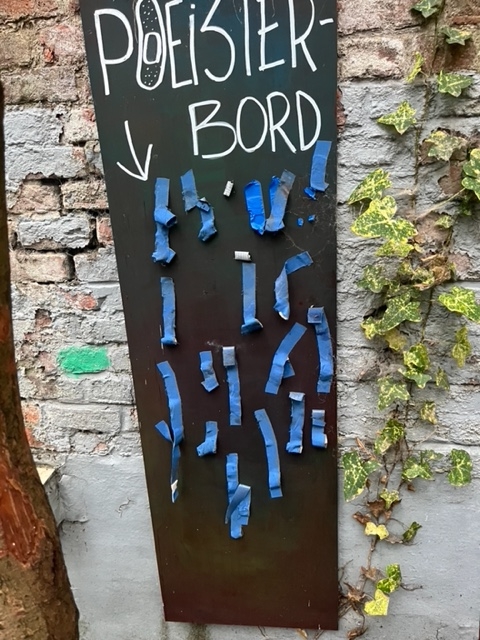 PLEiSTER-
BORD